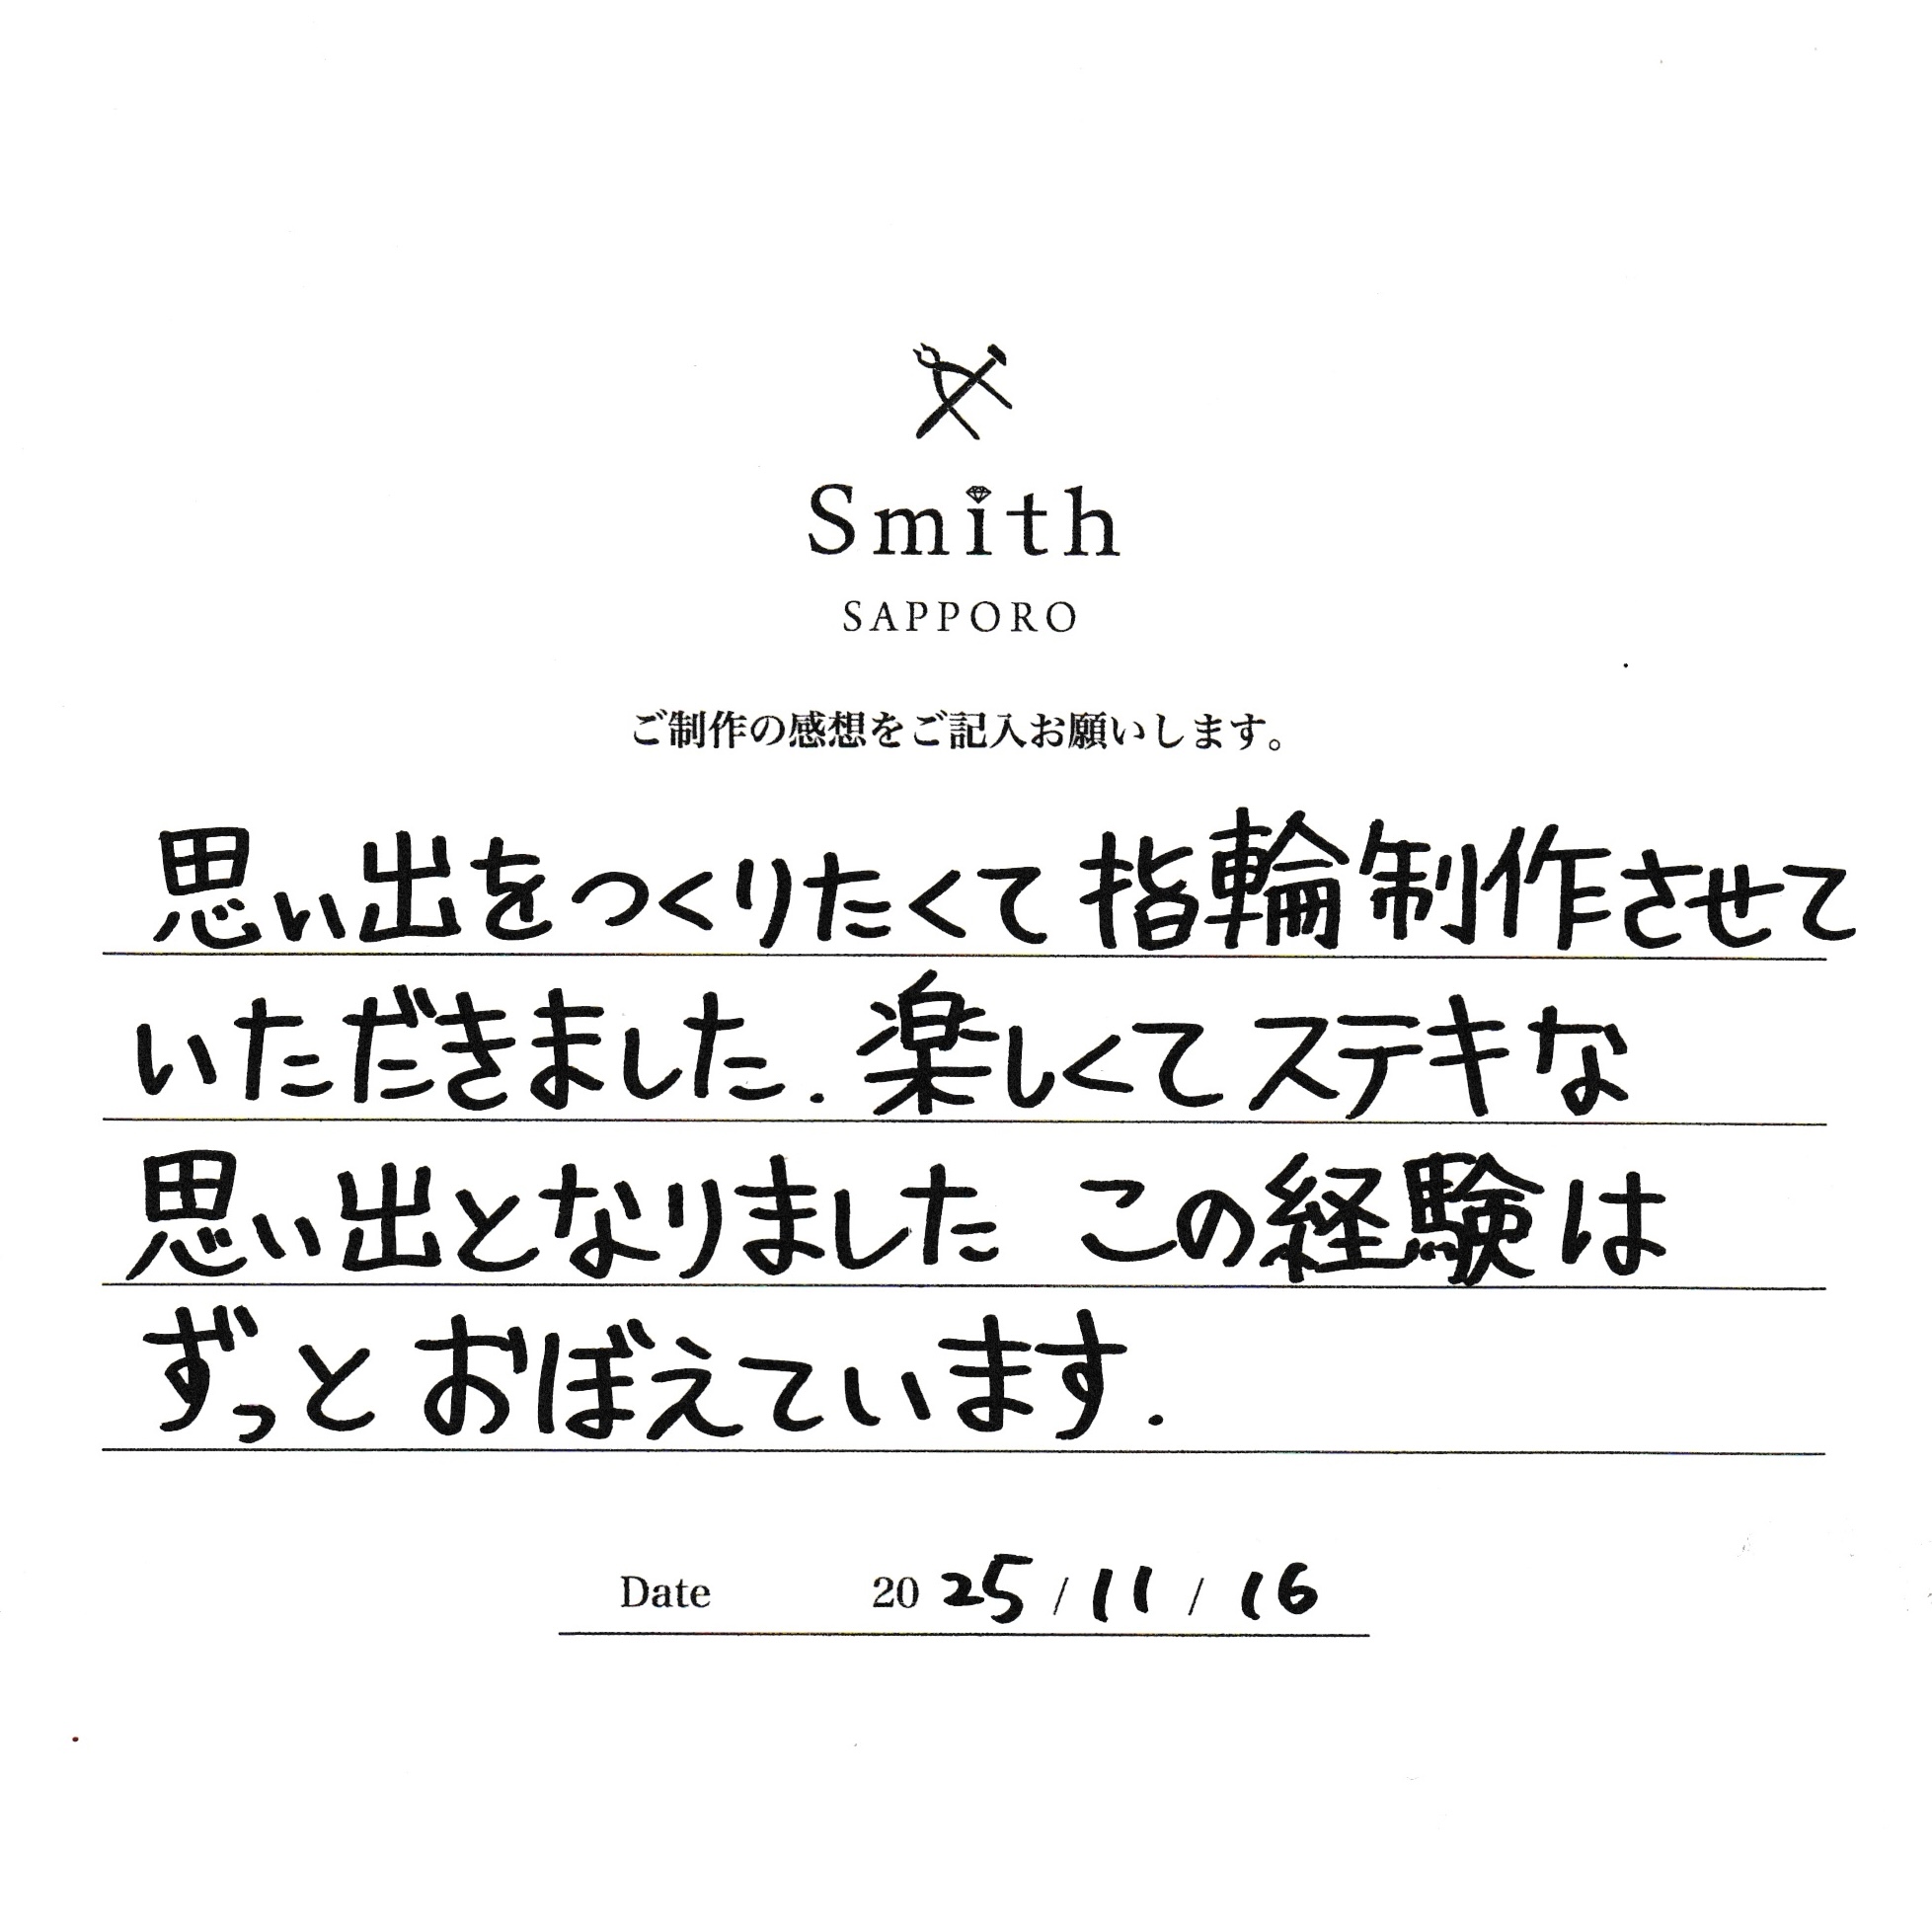 Smith
SAPPORO
ご制作の感想をご記入お願いします。
思い出をつくりたくて指輪制作させて
いただきました.楽しくてステキな
思い出となりました この経験は
ずっとおぼえています.
Date 2025/11/16